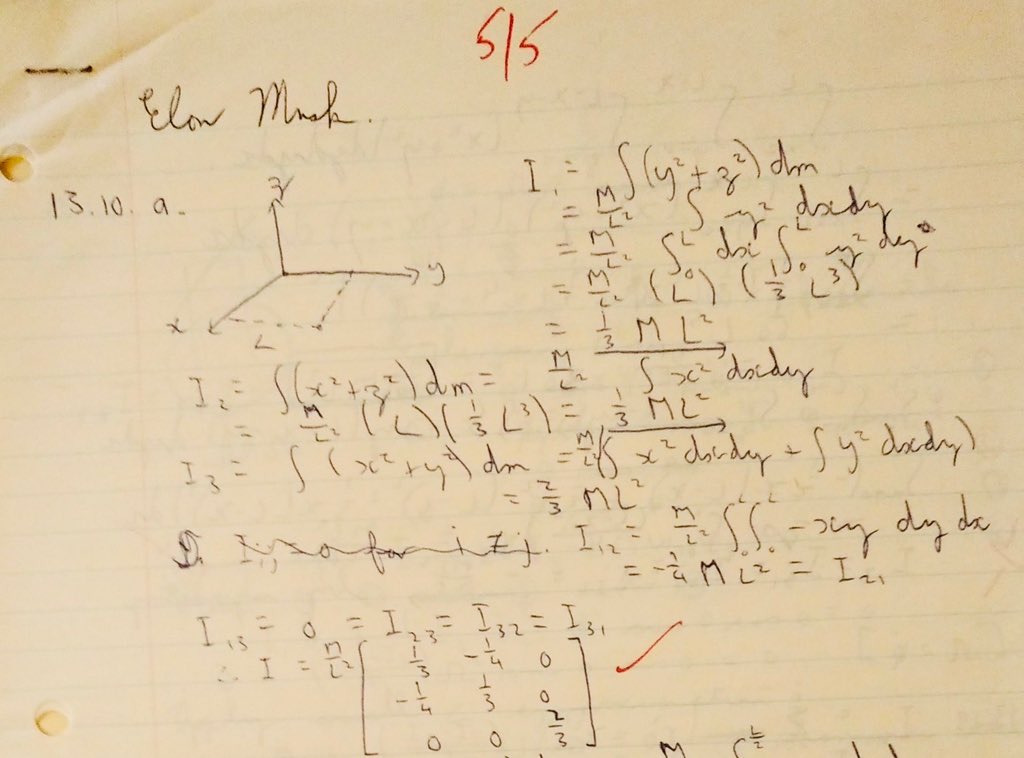 5/5
Elon Musk.
13.10. a.
z
y
x
L
I₁ = ∫(y² + z²) dm
= M/L² ∫ y² dxdy
= M/L² ∫₀ᴸ dx ∫₀ᴸ y² dy
= M/L² (L) (1/3 L³)
= 1/3 ML²
I₂ = ∫(x² + z²) dm = M/L² ∫ x² dxdy
= M/L² (L)(1/3 L³) = 1/3 ML²
I₃ = ∫ (x² + y²) dm = M/L² (∫ x² dxdy + ∫ y² dxdy)
= 2/3 ML²
I₁₂ = M/L² ∫₀ᴸ ∫₀ᴸ -xy dy dx
= -1/4 ML² = I₂₁
I₁₃ = 0 = I₂₃ = I₃₂ = I₃₁
∴ I = M/L² [ 1/3 -1/4 0
-1/4 1/3 0
0 0 2/3 ]